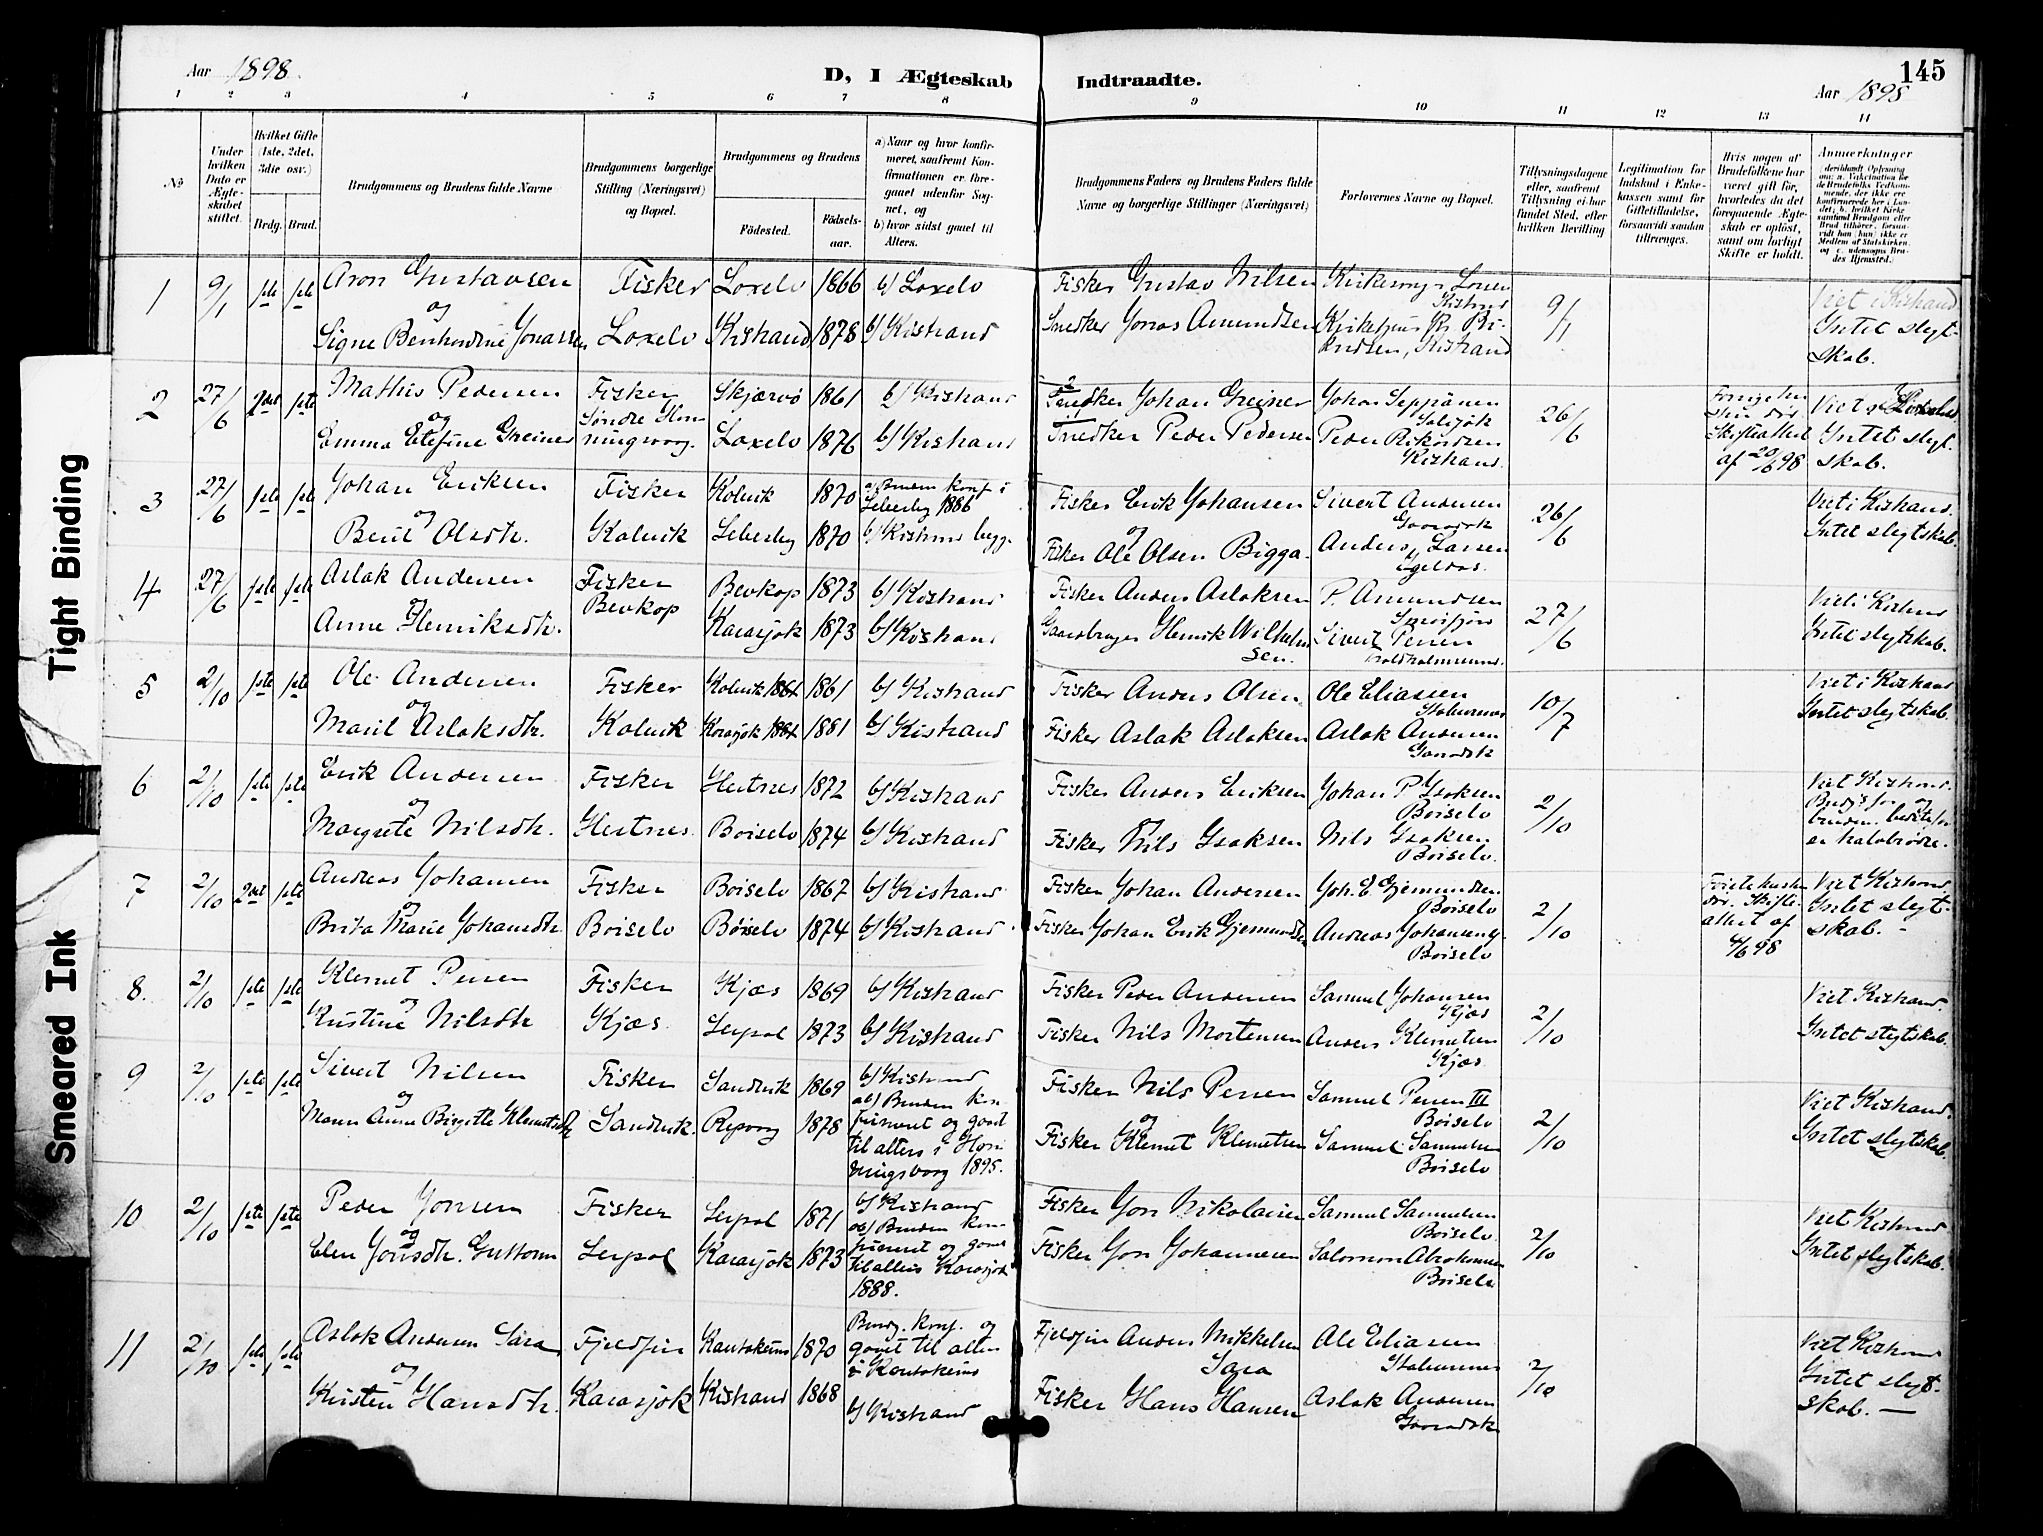 Tight Binding
Smeared Ink
Aar 1898.
D, I Ægteskab Indtraadte.
145
Aar 1898
1 2 3 4 5 6 7 8 9 10 11 12 13 14
No
Under hvilken Dato er Ægteskabet stiftet.
Hvilket Gifte (1ste, 2det, 3die osv.)
Brdg. Brud.
Brudgommens og Brudens fulde Navne
Brudgommens borgerlige Stilling (Næringsvei) og Bopæl.
Brudgommens og Brudens
Fødested.
Fødsels-aar.
a) Naar og hvor konfirmeret, saafremt Konfirmationen er foregaaet udenfor Sognet, og
b) hvor sidst gaaet til Alters.
Brudgommens Faders og Brudens Faders fulde Navne og borgerlige Stillinger (Næringsvei)
Forlovernes Navne og Bopæl.
Tillysningsdagene eller, saafremt Tillysning ei har fundet Sted, efter hvilken Bevilling
Legitimation for Indskud i Enkekassen samt for Giftetilladelse, forsaavidt saadan tiltrænges.
Hvis nogen af Brudefolkene har været gift før, hvorledes da det foregaaende Ægteskab er opløst, samt om lovligt Skifte er holdt.
Anmærkninger
1 9/1 1ste 1ste Aron Gustavsen Fisker Laxelv 1866 b) Laxelv Fisker Gustav Nilsen
og
Signe Berntordine Jonassen Laxelv Kistrand 1878 b) Kistrand Snedker Jonas Amundsen 9/1
Knudsen, Kistrand
Viet i Kistrand
Intet slegt-
skab.
2 27/6 2det 1ste Mathis Pedersen Fisker Skjærvø 1861 b) Kistrand Snedker Johan Greiner Johan Seppänen
og
Emma Greiner Laxelv 1876 b) Kistrand Snedker Peder Pedersen Peder 26/6
Kistrand
af 20/6 98
Intet slegt-
skab.
3 27/6 1ste 1ste Johan Eriksen Fisker Kolvik 1870 a) Bruden konf i
Lebesby 1886 Fisker Erik Johansen Sivert Andersen
og
Berit Olsdtr. Kolvik Lebesby 1870 b) Kistrand begge Fisker Ole Olsen Bigga Anders Larsen 26/6
Igeldas.
Viet i Kistrand.
Intet slegtskab.
4 27/6 1ste 1ste Aslak Andersen Fisker Bevkop 1873 b) Kistrand Fisker Anders Aslaksen P. Amundsen
og Bevkop Smørfjord
Anne Henriksdtr. Karasjok 1873 b) Kistrand Gaardbruger Henrik Wilhelm
sen. Sivert Persen 27/6
Viet i Kistrand
Intet slegtskab.
5 2/10 1ste 1ste Ole Andersen Fisker Kolvik 1861 b) Kistrand Fisker Anders Olsen Ole Eliassen
og
Marit Aslaksdtr. Kolvik Karasjok 1881 b) Kistrand Fisker Aslak Aslaksen Aslak Andersen 10/7
Viet i Kistrand
Intet slegtskab.
6 2/10 1ste 1ste Erik Andersen Fisker Hestnes 1872 b) Kistrand Fisker Anders Eriksen Johan P. Isaksen
og Børselv
Margrete Nilsdtr. Hestnes Børselv 1874 b) Kistrand Fisker Nils Isaksen Nils Isaksen 2/10
Børselv.
Viet Kistrand
er halvbrødre.
7 2/10 2det 1ste Andreas Johansen Fisker Børselv 1867 b) Kistrand Fisker Johan Andersen Joh. E. Gjermundsen
og Børselv
Brita Marie Johansdtr. Børselv Børselv 1874 b) Kistrand Fisker Johan Erik Gjermundsen Andreas Johannes 2/10
Børselv
Første hustru
død. Skifte-
attest af
Viet Kistrand.
Intet slegt-
skab. -
8. 2/10 1ste 1ste Klemet Persen Fisker Kjæs 1869 b) Kistrand Fisker Peder Andersen Samuel Johansen
og Kjæs
Kristine Nilsdtr Kjæs. Leirpol 1873 b) Kistrand Fisker Nils Mortensen Anders Klemetsen 2/10
Kjæs
Viet Kistrand.
Intet slegtskab.
9 2/10 1ste 1ste Sivert Nilsen Fisker Sandvik 1869 b) Kistrand Fisker Nils Persen Samuel Persen III
og ab) Bruden kon- Børselv
Maren Anne Birgitte Klemetsdtr Sandvik. Repvog 1878 firmeret og gaaet Fisker Klemet Klemetsen Samuel Samuelsen 2/10
til alters i Hon-
ningsvaag 1895. Børselv
Viet Kistrand.
Intet slegtskab.
10 2/10 1ste 1ste Peder Jonsen Fisker Leirpol 1871 b) Kistrand Fisker Jon Nikolaisen Samuel Samuelsen
og ab) Bruden kon- Børselv.
Elen Jonsdtr. Guttorm Leirpol Karasjok 1873 firmeret og gaaet Fisker Jon Johannesen Salomon Abrahamsen 2/10
til alters Karasjok
1888. Børselv
Viet Kistrand
Intet slegtskab.
11 2/10 1ste 1ste Aslak Andersen Sara Fjeldfin Kautokeino 1870 Brudg. konf. og
gaaet til alters
i Kautokeino Fjeldfin Anders Mikkelsen
Sara Ole Eliassen
og
Kirsten Hansdtr. Karasjok Kistrand 1868 b) Kistrand Fisker Hans Hansen Aslak Andersen 2/10
Viet Kistrand
Intet slegt-
skab. —